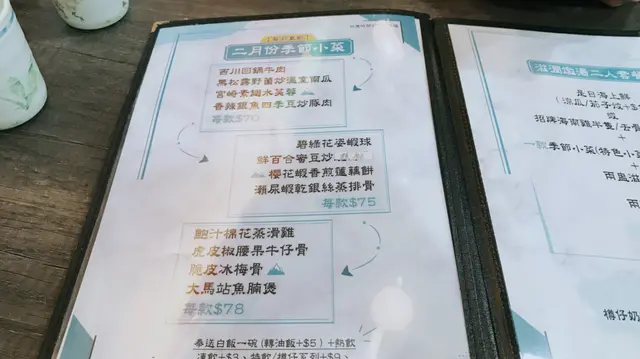 二月份季節小菜
西川回鍋牛肉
黑松露野菌炒溫室南瓜
宮崎素麵冰芙蓉
香辣銀魚四季豆炒豚肉
每款$70
碧綠花姿蝦球
鮮百合蜜豆炒
櫻花蝦香煎蓮藕餅
瀨尿蝦乾銀絲蒸排骨
每款$75
鮑汁棉花蒸滑雞
虎皮椒腰果牛仔骨
脆皮冰梅骨
大馬站魚腩煲
每款$78
奉送白飯一碗(轉油飯+$5) +熱飲
凍飲+$3、特飲/樽仔系列+$9、
滋潤燉湯二人套
是日海上鮮
或
招牌海南雞半隻/去骨
+
一款季節小菜(特色小
+
+
樽仔奶